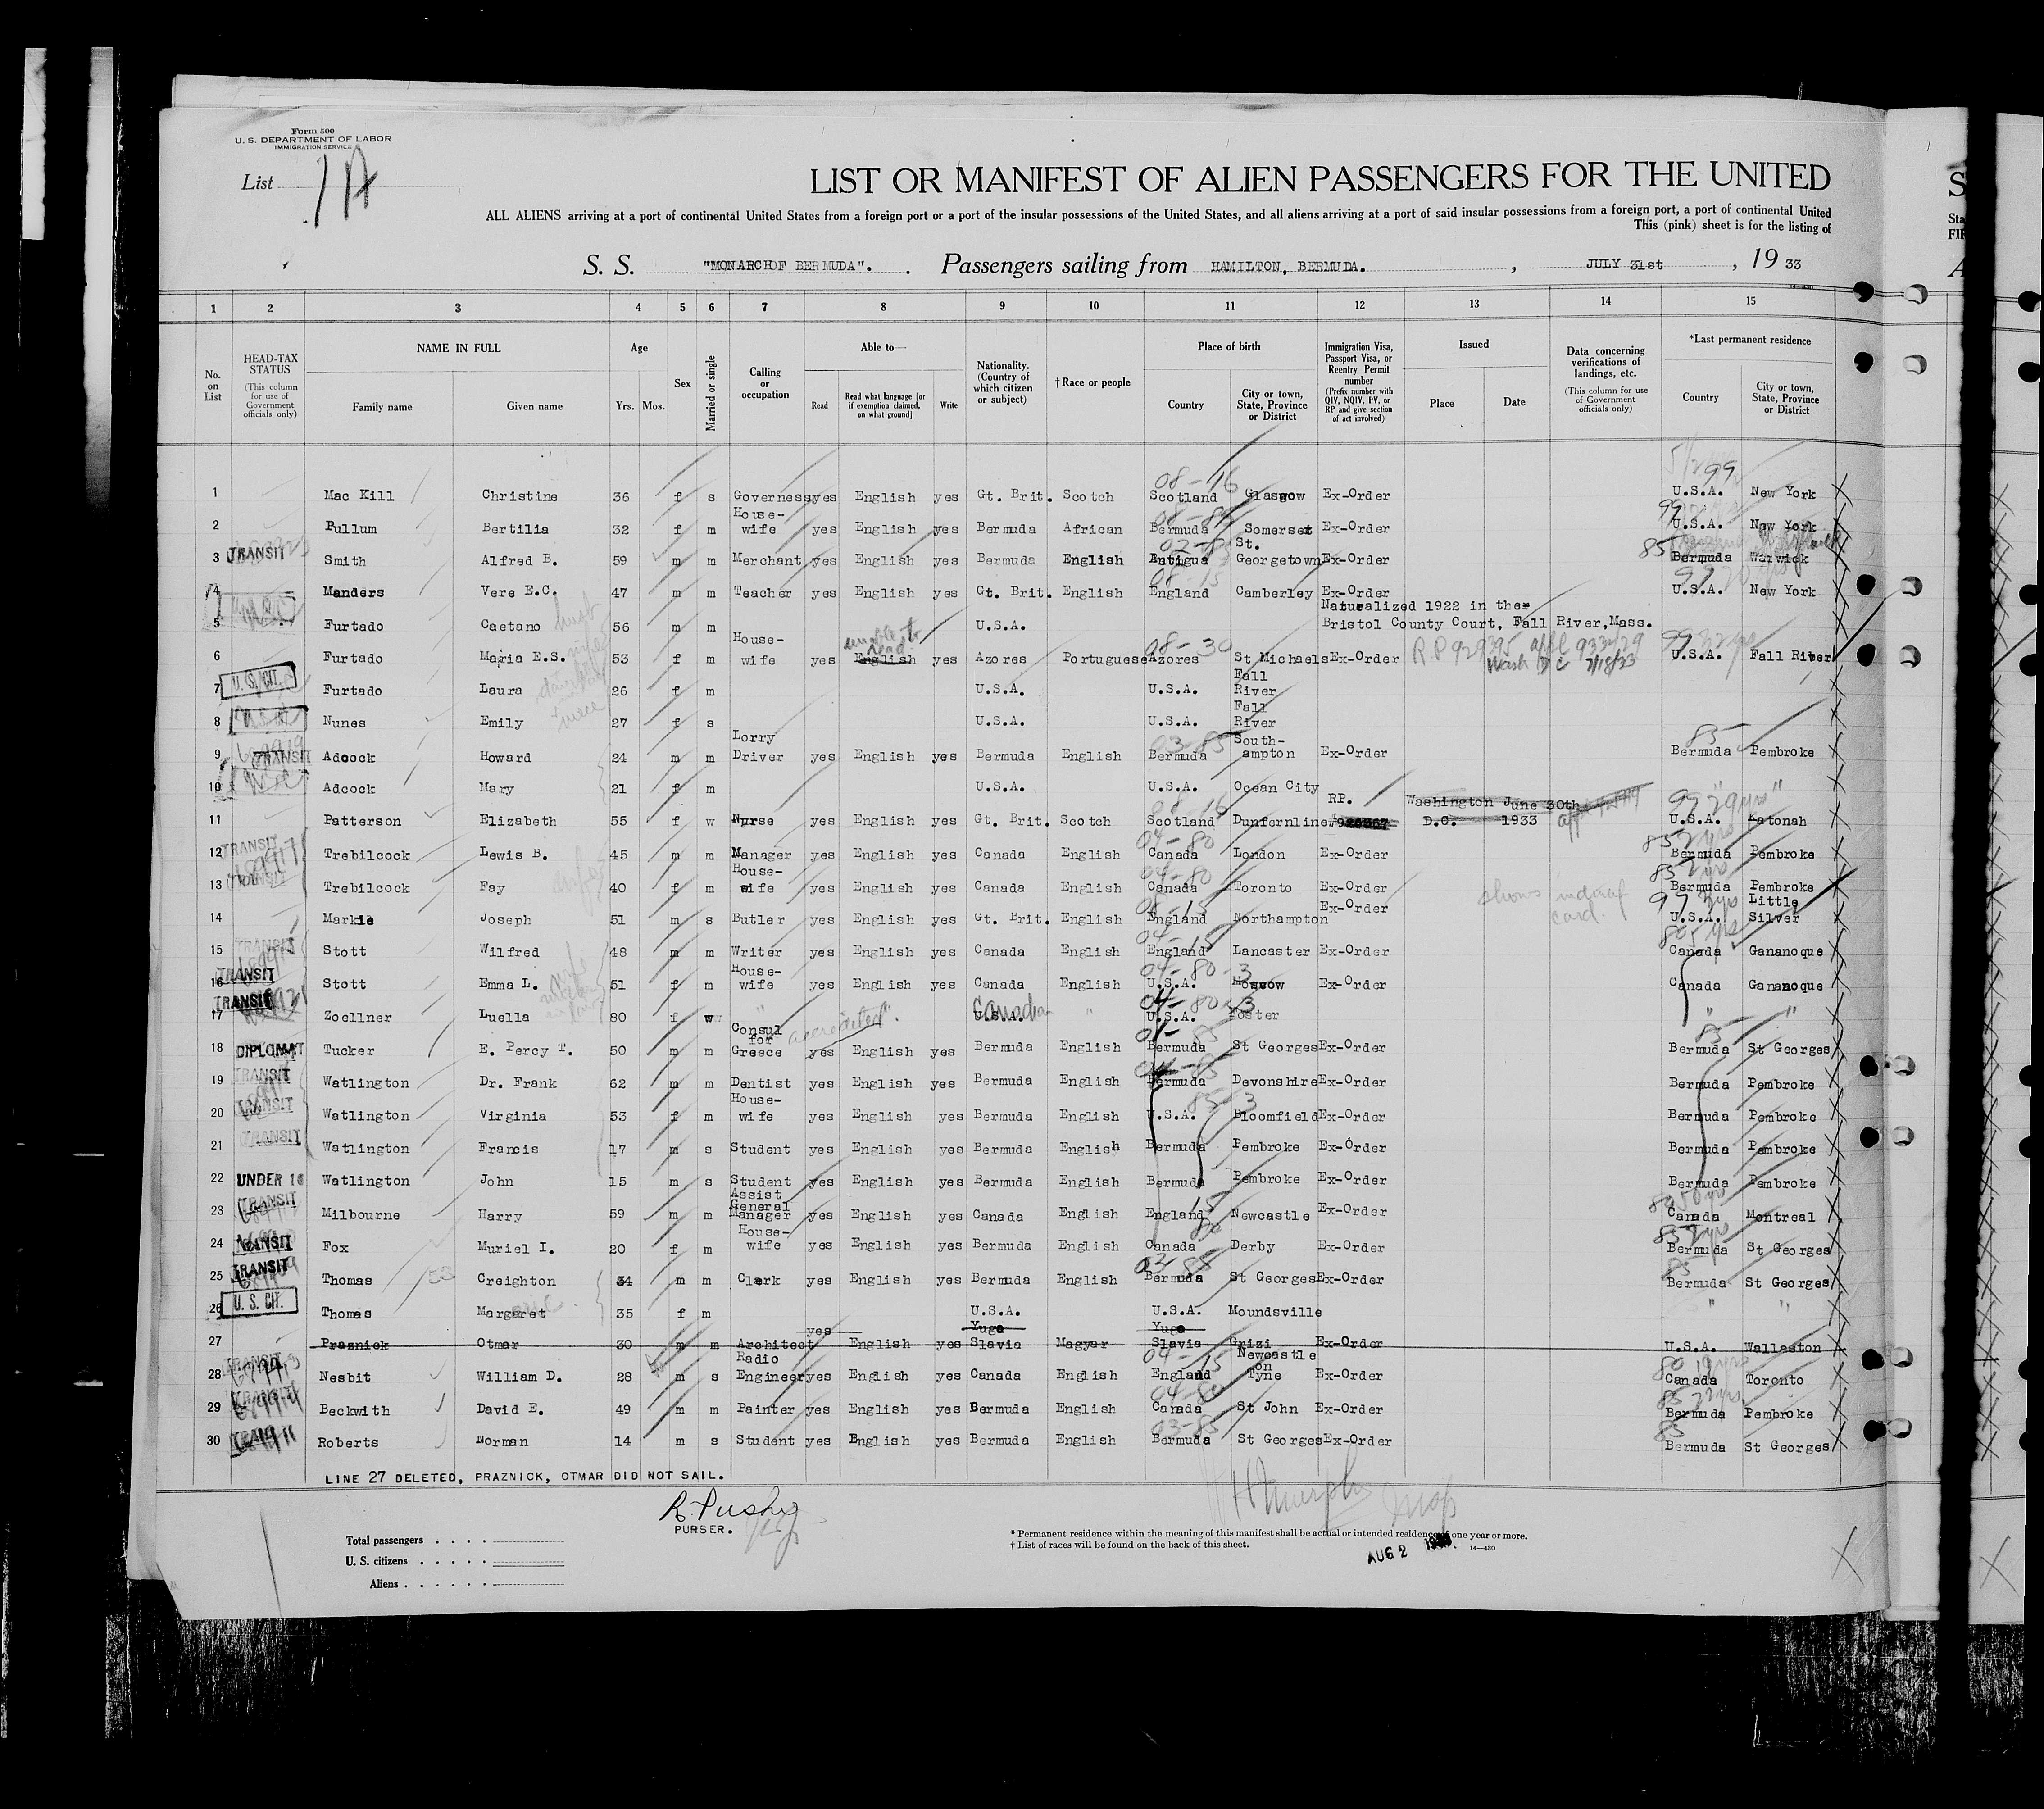 Form 500
U. S. DEPARTMENT OF LABOR
IMMIGRATION SERVICE
List 1A
LIST OR MANIFEST OF ALIEN PASSENGERS FOR THE UNITED
ALL ALIENS arriving at a port of continental United States from a foreign port or a port of the insular possessions of the United States, and all aliens arriving at a port of said insular possessions from a foreign port, a port of continental United
This (pink) sheet is for the listing of
S. S. "MONARCH OF BERMUDA". Passengers sailing from HAMILTON, BERMUDA. , JULY 31st , 19 33
1 2 3 4 5 6 7 8 9 10 11 12 13 14 15
No. on List
HEAD-TAX STATUS (This column for use of Government officials only)
NAME IN FULL Family name Given name
Age Yrs. Mos.
Sex
Married or single
Calling or occupation
Able to— Read Read what language [or if exemption claimed, on what ground] Write
Nationality. (Country of which citizen or subject)
†Race or people
Place of birth Country City or town, State, Province or District
Immigration Visa, Passport Visa, or Reentry Permit number (Prefix number with QIV, NQIV, PV, or RP and give section of act involved)
Issued Place Date
Data concerning verifications of landings, etc. (This column for use of Government officials only)
*Last permanent residence Country City or town, State, Province or District
1 Mac Kill Christine 36 f s Governess yes English yes Gt. Brit. Scotch 08-16 Scotland Glasgow Ex-Order 99 U.S.A. New York
2 Pullum Bertilia 32 f m House-wife yes English yes Bermuda African Bermuda Somerset Ex-Order 99 U.S.A. New York
3 TRANSIT Smith Alfred B. 59 m m Merchant yes English yes Bermuda English Antigua St. Georgetown Ex-Order 85 Bermuda Warwick
4 Manders Vere E.C. 47 m m Teacher yes English yes Gt. Brit. English 08-15 England Camberley Ex-Order U.S.A. New York
5 Furtado Caetano 56 m m U.S.A. Naturalized 1922 in the Bristol County Court, Fall River, Mass.
6 Furtado Maria E.S. wife 53 f m House-wife yes unable to read English yes Azores Portuguese 08-30 Azores St Michaels Ex-Order Wash D C 7/18/33 U.S.A. Fall River
7 U. S. CIT. Furtado Laura daughter 26 f m U.S.A. U.S.A. Fall River
8 Nunes Emily 27 f s U.S.A. U.S.A. Fall River
9 TRANSIT Adcock Howard 24 m m Lorry Driver yes English yes Bermuda English 03-85 Bermuda South-ampton Ex-Order 85 Bermuda Pembroke
10 Adcock Mary 21 f m U.S.A. U.S.A. Ocean City
11 Patterson Elizabeth 55 f w Nurse yes English yes Gt. Brit. Scotch Scotland Dunfernline RP. Washington D.C. June 30th 1933 99 29yrs U.S.A. Katonah
12 TRANSIT Trebilcock Lewis B. 45 m m Manager yes English yes Canada English 04-80 Canada London Ex-Order 85 2 yrs Bermuda Pembroke
13 TRANSIT Trebilcock Fay wife 40 f m House-wife yes English yes Canada English 04-80 Canada Toronto Ex-Order 85 2 yrs Bermuda Pembroke
14 Markie Joseph 51 m s Butler yes English yes Gt. Brit. English 08-15 England Northampton Ex-Order shows card. U.S.A. Little Silver
15 TRANSIT Stott Wilfred 48 m m Writer yes English yes Canada English 04-15 England Lancaster Ex-Order Canada Gananoque
16 TRANSIT Stott Emma L. wife 51 f m House-wife yes English yes Canada English 04-80-3 U.S.A. Moscow Ex-Order Canada Gananoque
17 TRANSIT Zoellner Luella 80 f w U.S.A. Canadian " 04-80-3 U.S.A. Foster " "
18 DIPLOMAT Tucker E. Percy T. 50 m m Consul for Greece accredited yes English yes Bermuda English Bermuda St Georges Ex-Order 85 Bermuda St Georges
19 TRANSIT Watlington Dr. Frank 62 m m Dentist yes English yes Bermuda English Bermuda Devonshire Ex-Order Bermuda Pembroke
20 TRANSIT Watlington Virginia 53 f m House-wife yes English yes Bermuda English U.S.A. Bloomfield Ex-Order Bermuda Pembroke
21 TRANSIT Watlington Francis 17 m s Student yes English yes Bermuda English Bermuda Pembroke Ex-Order Bermuda Pembroke
22 UNDER 16 Watlington John 15 m s Student yes English yes Bermuda English Bermuda Pembroke Ex-Order Bermuda Pembroke
23 TRANSIT Milbourne Harry 59 m m Assist General Manager yes English yes Canada English England Newcastle Ex-Order Canada Montreal
24 TRANSIT Fox Muriel I. 20 f m House-wife yes English yes Bermuda English Canada Derby Ex-Order 85 2yrs Bermuda St Georges
25 TRANSIT Thomas Creighton 34 m m Clerk yes English yes Bermuda English 03-85 Bermuda St Georges Ex-Order 85 Bermuda St Georges
26 U. S. CIT. Thomas Margaret 35 f m U.S.A. U.S.A. Moundsville " "
27 Praznick Otmar 30 m m Architect yes English yes Yugo Slavia Magyar Yugo Slavia Grizi Ex-Order U.S.A. Wallaston
28 TRANSIT Nesbit William D. 28 m s Radio Engineer yes English yes Canada English 04-15 England Newcastle on Tyne Ex-Order Canada Toronto
29 TRANSIT Beckwith David E. 49 m m Painter yes English yes Bermuda English 04-80 Canada St John Ex-Order Bermuda Pembroke
30 Roberts Norman 14 m s Student yes English yes Bermuda English 03-85 Bermuda St Georges Ex-Order 85 Bermuda St Georges
LINE 27 DELETED, PRAZNICK, OTMAR DID NOT SAIL.
PURSER.
Total passengers
U. S. citizens
Aliens
* Permanent residence within the meaning of this manifest shall be actual or intended residence of one year or more.
† List of races will be found on the back of this sheet.
14—430
AUG 2